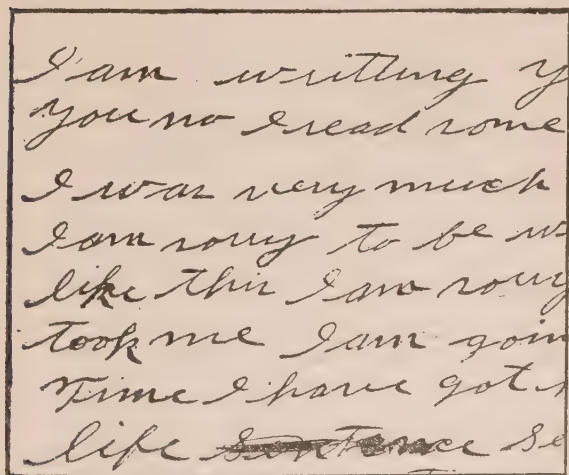 I am writting y
you no I read some
I was very much
I am sorry to be w
like this I am sorry
took me I am goin
Time I have got
life sentence se